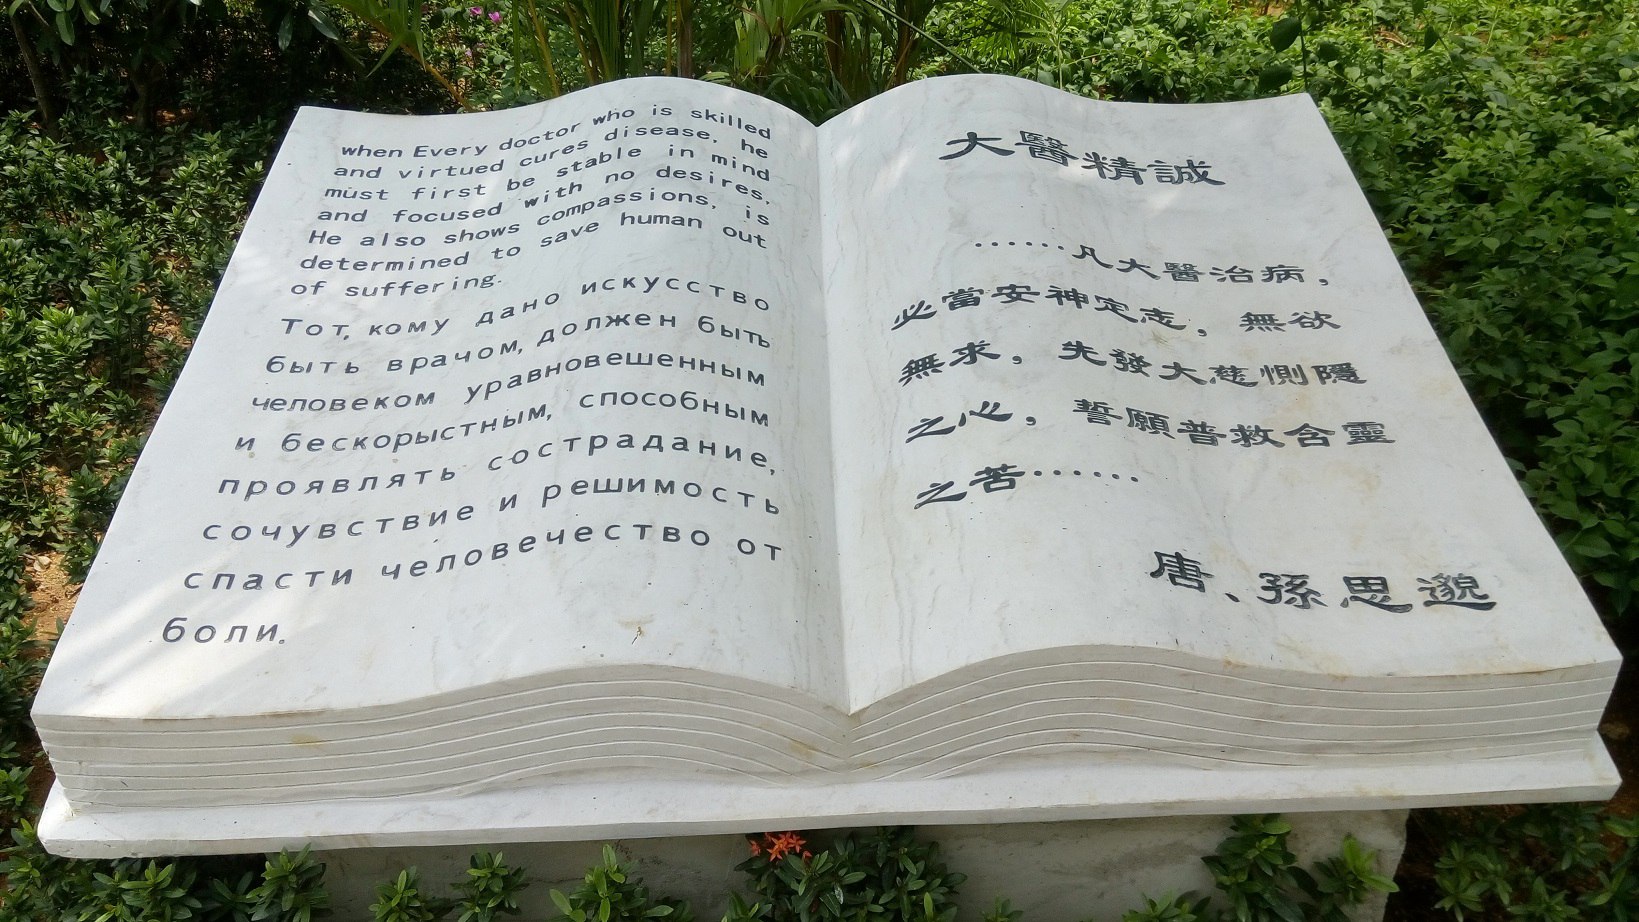 when Every doctor who is skilled
and virtued cures disease, he
must first be stable in mind
and focused with no desires,
He also shows compassions, is
determined to save human out
of suffering.
Тот, кому дано искусство
быть врачом, должен быть
человеком уравновешенным
и бескорыстным, способным
проявлять сострадание,
сочувствие и решимость
спасти человечество от
боли.
大醫精誠
······凡大醫治病，
必當安神定志，無欲
無求，先發大慈惻隱
之心，誓願普救含靈
之苦······
唐、孫思邈